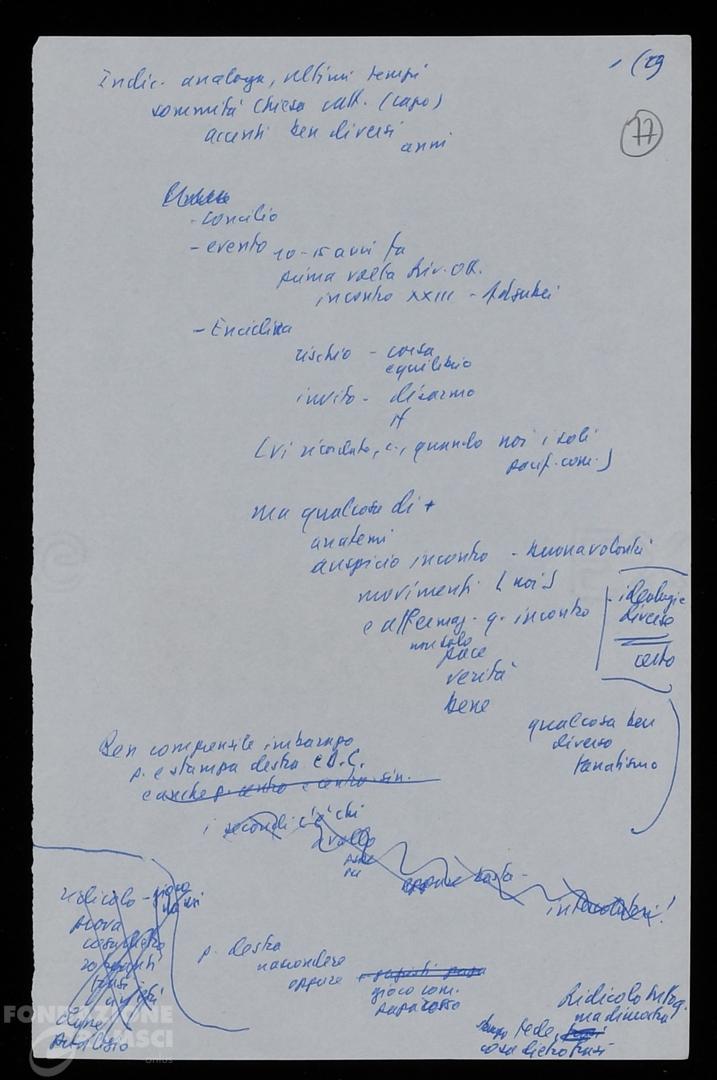 1 (29
77
Indic. analoga, ultimi tempi
sommità Chiesa catt. (capo)
accenti ben diversi
anni
- Concilio
- evento 10-15 anni fa
prima volta
incontro XXIII -
- Enciclica
rischio - corsa
equilibrio
invito - disarmo
H
(vi ricordate, c., quando noi i soli
pacif. com.)
ma qualcosa di +
anatemi
auspicio incontro - buonavolontà
movimenti (noi)
e affermaz. q. incontro
non solo
pace
verità
bene
- ideologie
diverse
certo
qualcosa ben
diverso
fanatismo
Ben comprensile imbarazzo
p. e stampa destra e D.C.
e anche p. centro e centro-sin.
i secondi c'è chi
avalla
oppure
ridicolo -
prova
p. destra
nascondere
oppure
gioco com.
papa rosso
Ridicolo
ma dimostra
fede,
cosa dietro
FONDAZIONE
GRAMSCI
onlus